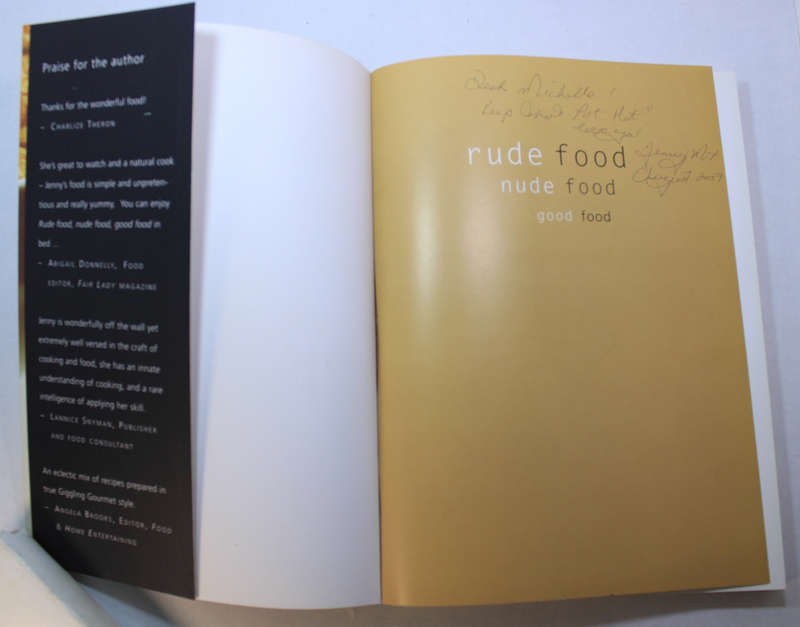 Praise for the author
Thanks for the wonderful food!
– Charlize Theron
She's great to watch and a natural cook
– Jenny's food is simple and unpreten-
tious and really yummy. You can enjoy
Rude food, nude food, good food in
bed ...
– Abigail Donnelly, Food
editor, Fair Lady magazine
Jenny is wonderfully off the wall yet
extremely well versed in the craft of
cooking and food, she has an innate
understanding of cooking, and a rare
intelligence of applying her skill.
– Lannice Snyman, Publisher
and food consultant
An eclectic mix of recipes prepared in
true Giggling Gourmet style.
– Angela Brooks, Editor, Food
& Home Entertaining
Michelle!
Keep Pot Hot"
rude food
nude food
good food
Jenny